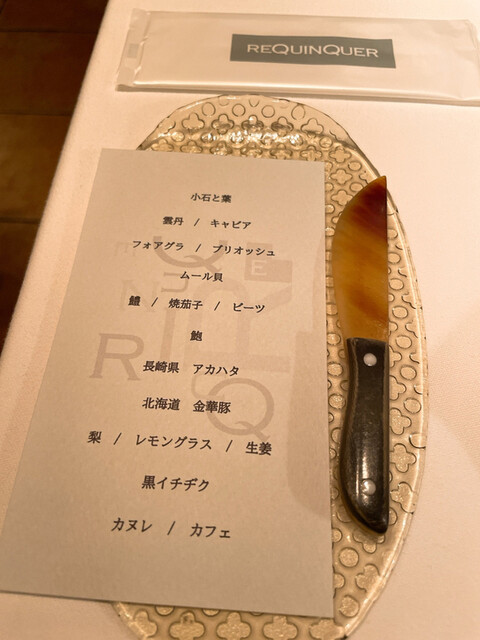 REQUINQUER
小石と葉
雲丹 / キャビア
フォアグラ / ブリオッシュ
ムール貝
鱧 / 焼茄子 / ビーツ
鮑
長崎県 アカハタ
北海道 金華豚
梨 / レモングラス / 生姜
黒イチヂク
カヌレ / カフェ